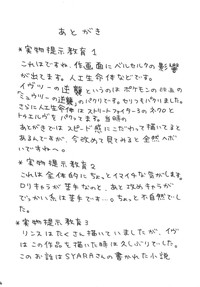 あとがき
*実物提示教育1
これはですね、作画面にベルセルクの影響
が出てます。人工生命体などです。
イヴツーの逆襲というのはポケモンの映画の
「ミュウツーの逆襲」のパクリです。セリフもパクりました。
さらに人工生命体はストリートファイター3のネクロと
トゥエルヴをパクってます。当時の
あとがきではスピード感にこだわって描いてると
あるんですが、今改めて見てみると全然ヘボ
いですね〜。
*実物提示教育2
これは全体的にちょっとイマイチな気がします。
ロリキャラが苦手なのと、あと攻めキャラが
でっかい系は苦手です…。ちょっと不自然でし
た。
*実物提示教育3
リンスはたくさん描いていましたが、イヴは
はこの作品を描いた時は久しぶりでした。
このお話はSYARAさんの書かれた小説